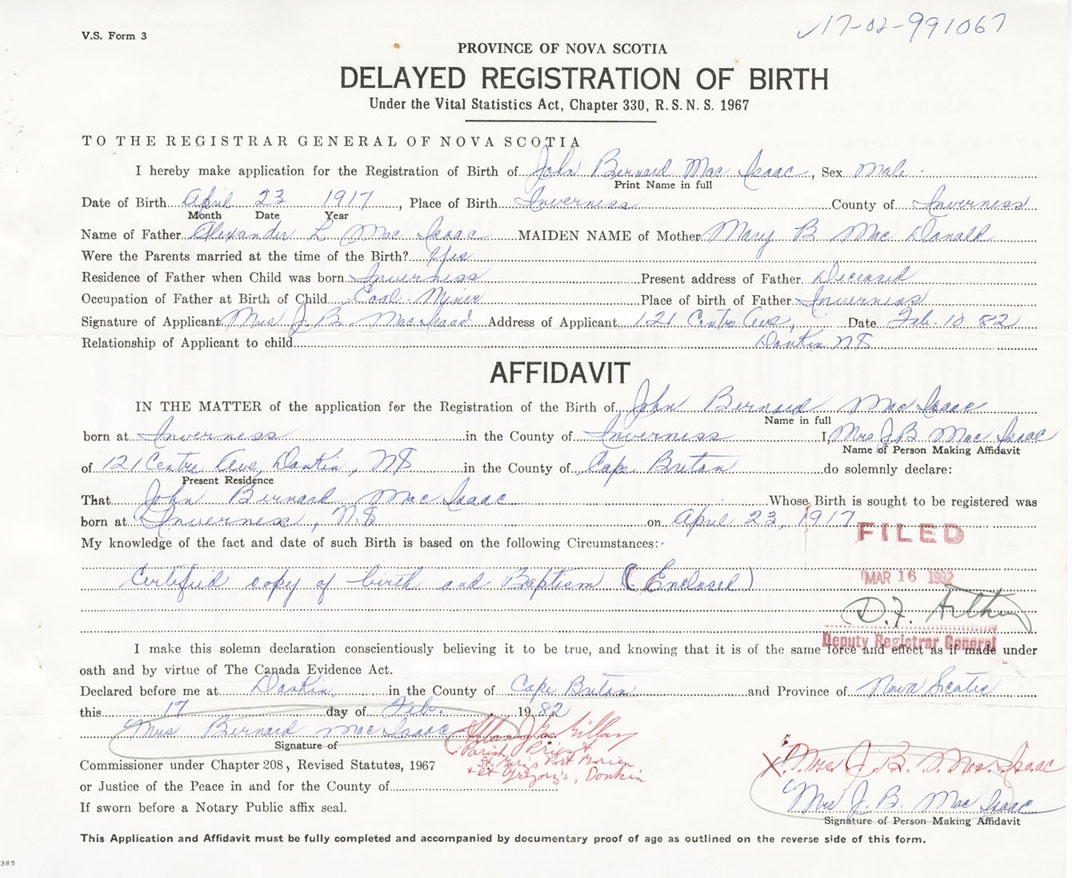 V.S. Form 3
17-02-991067
PROVINCE OF NOVA SCOTIA
DELAYED REGISTRATION OF BIRTH
Under the Vital Statistics Act, Chapter 330, R.S.N.S. 1967
TO THE REGISTRAR GENERAL OF NOVA SCOTIA
I hereby make application for the Registration of Birth of John Bernard Mac Isaac, Sex Male.
Print Name in full
Date of Birth April 23 1917, Place of Birth Inverness County of Inverness
Month Date Year
Name of Father Alexander L Mac Isaac MAIDEN NAME of Mother Mary B Mac Donald
Were the Parents married at the time of the Birth? Yes
Residence of Father when Child was born Inverness Present address of Father Deceased
Occupation of Father at Birth of Child Coal Miner Place of birth of Father Inverness
Signature of Applicant Mrs J. B. Mac Isaac Address of Applicant 121 Centre Ave, Date Feb. 10 82
Relationship of Applicant to child Donkin NS
AFFIDAVIT
IN THE MATTER of the application for the Registration of the Birth of John Bernard Mac Isaac
Name in full
born at Inverness in the County of Inverness I, Mrs J B Mac Isaac
Name of Person Making Affidavit
of 121 Centre Ave, Donkin, NS in the County of Cape Breton do solemnly declare:
Present Residence
That John Bernard Mac Isaac Whose Birth is sought to be registered was
born at Inverness, N.S on April 23, 1917
FILED
My knowledge of the fact and date of such Birth is based on the following Circumstances:-
Certified copy of birth and Baptism (Enclosed)
MAR 16 1982
D.F.
Deputy Registrar General
I make this solemn declaration conscientiously believing it to be true, and knowing that it is of the same force and effect as if made under
oath and by virtue of The Canada Evidence Act.
Declared before me at Donkin, in the County of Cape Breton and Province of Nova Scotia
this 17 day of Feb. 1982
Mrs Bernard MacIsaac
Signature of
Parish Priest
St. Mary's Port Morien
+ St Gregory's, Donkin
Commissioner under Chapter 208, Revised Statutes, 1967
or Justice of the Peace in and for the County of
If sworn before a Notary Public affix seal.
X Mrs J. B. Mac Isaac
Mrs J. B. Mac Isaac
Signature of Person Making Affidavit
This Application and Affidavit must be fully completed and accompanied by documentary proof of age as outlined on the reverse side of this form.
385